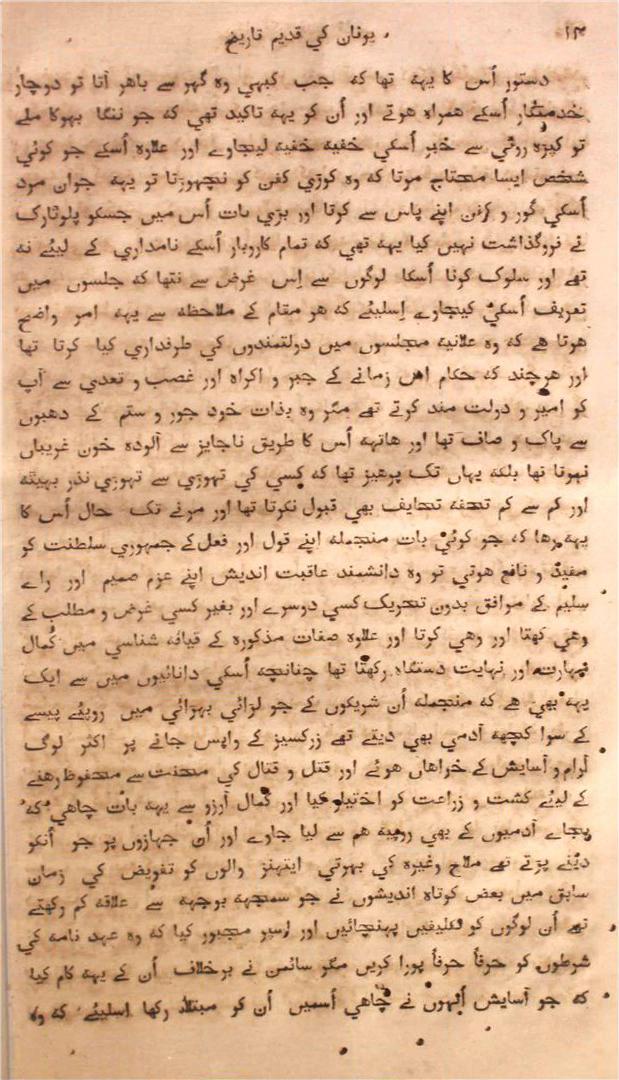 ۱۴ یونان کي قدیم تاریخ
دستور اُس کا یہہ تھا کہ جب کبھي وہ گھر سے باھر آتا تو دوچار
خدمتگار اُسکے ھمراہ ھوتے اور اُن کو یہہ تاکید تھي کہ جو ننگا بھوکا ملے
تو کپڑہ روٹي سے خبر اُسکي خفیہ خفیہ لیجاوے اور علاوہ اُسکے جو کوئي
شخص ایسا محتاج مرتا کہ وہ کوڑي کفن کو نچھوڑتا تو یہہ جوان مرد
اُسکي گور و کفن اپنے پاس سے کرتا اور بڑي بات اُس میں جسکو پلوٹارک
نے فروگذاشت نہیں کیا یہہ تھي کہ تمام کاروبار اُسکے نامداري کے لیئے نہ
تھے اور سلوک کرنا اُسکا لوگوں سے اِس غرض سے نتھا کہ جلسوں میں
تعریف اُسکي کیجاوے اِسلیئے کہ ھر مقام کے ملاحظہ سے یہہ امر واضح
ھوتا ھے کہ وہ علانیہ مجلسوں میں دولتمندوں کي طرفداري کیا کرتا تھا
اور ھرچند کہ حکام اُس زمانے کے جبر و اکراہ اور غصب و تعدي سے آپ
کو امیر و دولت مند کرتے تھے مگر وہ بذات خود جور و ستم کے دھبوں
سے پاک و صاف تھا اور ھاتھہ اُس کا طریق ناجایز سے آلودہ خون غریباں
نہوتا تھا بلکہ یہاں تک پرھیز تھا کہ کسي کي تھوڑي سے تھوڑي نذر بھینٹ
اور کم سے کم تحفہ تحایف بھي قبول نکرتا تھا اور مرنے تک حال اُس کا
یہہ رھا کہ جو کوئي بات منجملہ اپنے قول اور فعل کے جمہوري سلطنت کو
مفید و نافع ھوتي تو وہ دانشمند عاقبت اندیش اپنے عزم صمیم اور راے
سلیم کے موافق بدون تحریک کسي دوسرے اور بغیر کسي غرض و مطلب کے
وھي کہتا اور وھي کرتا اور علاوہ صفات مذکورہ کے قیافہ شناسي میں کمال
مہارت اور نہایت دستگاہ رکھتا تھا چنانچہ اُسکي دانائیوں میں سے ایک
یہہ بھي ھے کہ منجملہ اُن شریکوں کے جو لڑائي بھڑائي میں روپیئے پیسے
کے سوا کچھہ آدمي بھي دیتے تھے زرکسیز کے واپس جانے پر اکثر لوگ
آرام و آسایش کے خواھاں ھوئے اور قتل و قتال کي محنت سے محفوظ رھنے
کے لیئے کشت و زراعت کو اختیار کیا اور کمال آرزو سے یہہ بات چاھي کہ
بجاے آدمیوں کے بھي روپیہ ھم سے لیا جاوے اور اُن جہازوں پر جو اُنکو
دینے پڑتے تھے ملاح وغیرہ کي بھرتي ایتھنز والوں کو تفویض کي زمان
سابق میں بعض کوتاہ اندیشوں نے جو سمجھہ بوجھہ سے علاقہ کم رکھتے
تھے اُن لوگوں کو تکلیفیں پہنچائیں اور اِسپر مجبور کیا کہ وہ عہد نامہ کي
شرطوں کو حرفاً حرفاً پورا کریں مگر سائمن نے برخلاف اُن کے یہہ کام کیا
کہ جو آسایش اُنہوں نے چاھي اُسمیں اُن کو مبتلا رکھا اسلیئے کہ وہ